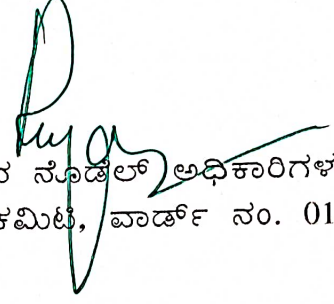 ನೊಡೆಲ್ ಅಧಿಕಾರಿಗಳ
ಕಮಿಟಿ, ವಾರ್ಡ್ ನಂ. 01